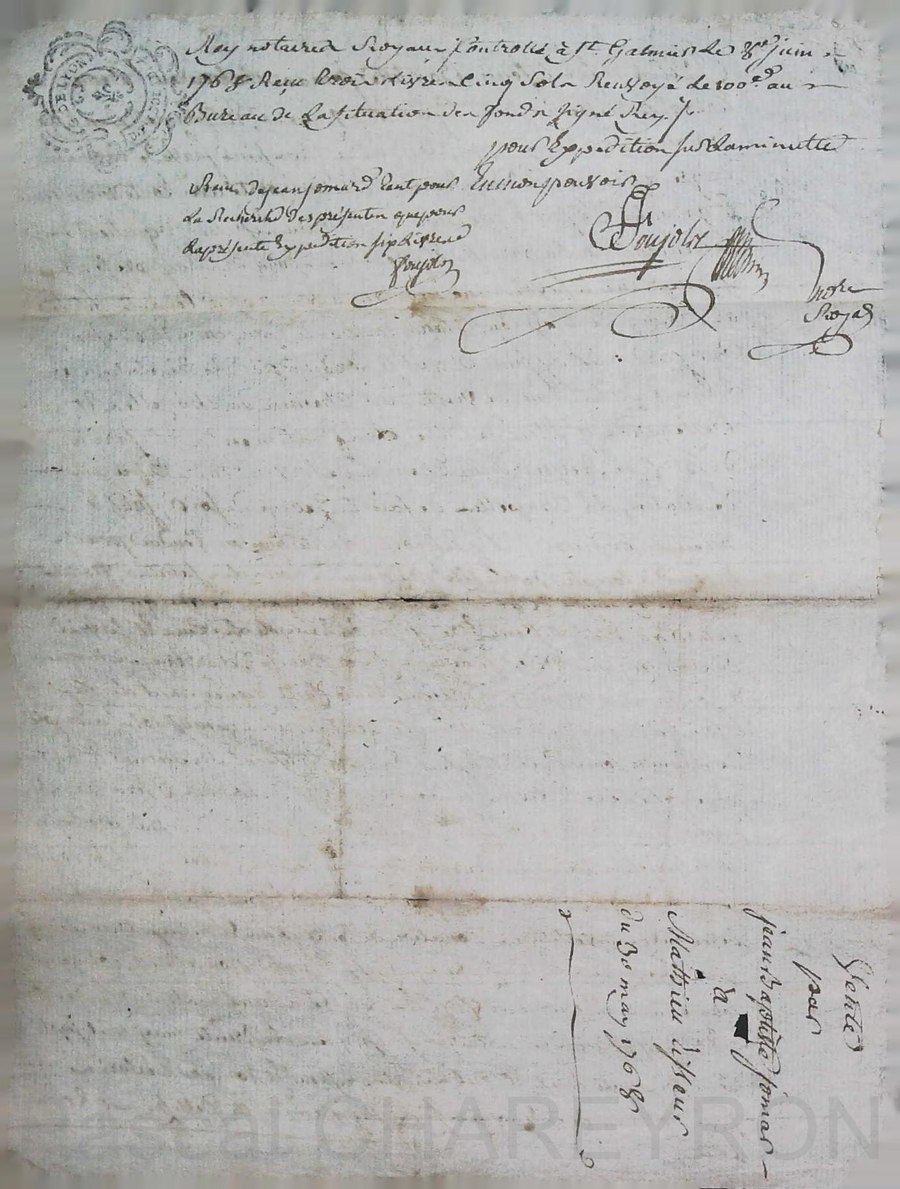 Rey notaires Royaux Controllé à St. Galmier le 8e juin
1768 Reçu trois livres Cinq Sols Renvoyé le 100e. au
Bureau de La situation des fonds signé Rey ./.
pour Expedition sur La minutte
Reçu de jean jomard tant pour
La Recherche des présentes que pour
La présente Expedition six Livres
Poujolz
En mon pouvoir
Poujolz
no.re
Royal
Vente
par
jean Baptiste jomar
à
Mathieu
du 30 may 1768
DE LYON
Pascal CHAREYRON